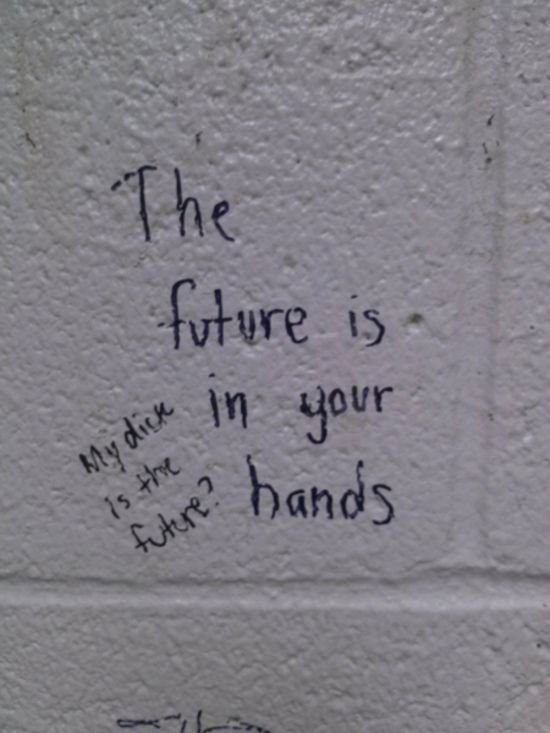 The
future is
in your
hands
My dick
is the
future?